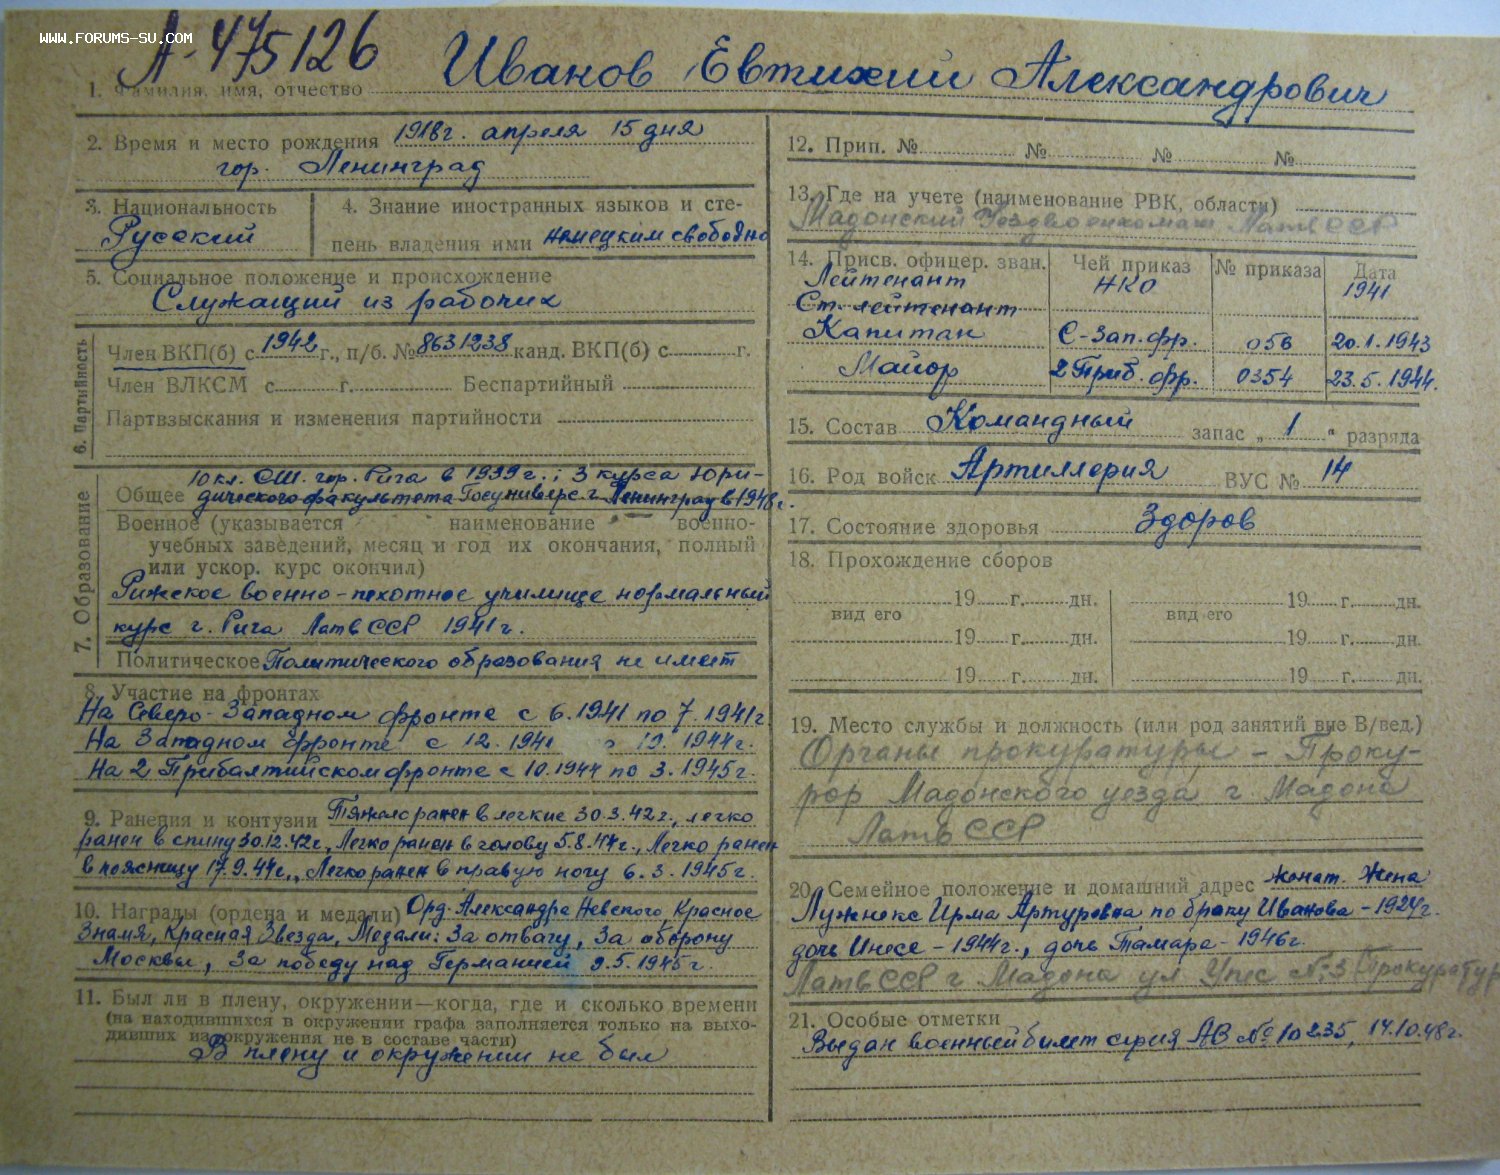 WWW.FORUMS-SU.COM
А-475126
1. Фамилия, имя, отчество Иванов Евтихий Александрович
2. Время и место рождения 1918г. апреля 15 дня
гор. Ленинград
3. Национальность
Русский
4. Знание иностранных языков и сте-
пень владения ими немецким свободно
5. Социальное положение и происхождение
Служащий из рабочих
6. Партийность
Член ВКП(б) с 1942 г., п/б. № 8631238 канд. ВКП(б) с г.
Член ВЛКСМ с г. Беспартийный
Партвзыскания и изменения партийности
7. Образование
10 кл. СШ. гор. Рига в 1939 г.; 3 курса юри-
Общее дического факультета Госуниверс г. Ленинград в 1948 г.
Военное (указывается наименование военно-
учебных заведений, месяц и год их окончания, полный
или ускор. курс окончил)
Рижское военно-пехотное училище нормальный
курс г. Рига ЛатвССР 1941 г.
Политическое Политического образования не имеет
8. Участие на фронтах
На Северо-Западном фронте с 6.1941 по 7.1941г.
На Западном фронте с 12.1941 19.1944г.
На 2 Прибалтийском фронте с 10.1944 по 3.1945г.
9. Ранения и контузии Тяжело ранен в легкие 30.3.42г., легко
ранен в спину 30.12.42г., Легко ранен в голову 5.8.44г., Легко ранен
в поясницу 17.9.44г., Легко ранен в правую ногу 6.3.1945г.
10. Награды (ордена и медали) Орд. Александра Невского, Красное
Знамя, Красная Звезда, Медали: За отвагу, За оборону
Москвы, За победу над Германией 9.5.1945г.
11. Был ли в плену, окружении—когда, где и сколько времени
(на находившихся в окружении графа заполняется только на выхо-
дивших из окружения не в составе части)
В плену и окружении не был
12. Прип. № № № №
13. Где на учете (наименование РВК, области)
Мадонский Уездвоенкомат ЛатвССР
14. Присв. офицер. зван. Чей приказ № приказа Дата
Лейтенант НКО 1941
Ст. лейтенант
Капитан С-Зап.фр. 056 20.1.1943
Майор 2 Приб. фр. 0354 23.5.1944.
15. Состав Командный запас „ 1 “ разряда
16. Род войск Артиллерия ВУС № 14
17. Состояние здоровья Здоров
18. Прохождение сборов
19 г. дн. 19 г. дн.
вид его вид его
19 г. дн. 19 г. дн.
19 г. дн. 19 г. дн.
19. Место службы и должность (или род занятий вне В/вед.)
Органы прокуратуры - Проку-
рор Мадонского уезда г. Мадона
ЛатвССР
20. Семейное положение и домашний адрес женат. Жена
Лужнекс Ирма Артуровна по браку Иванова - 1924г.
дочь Инесе - 1944г., дочь Тамара - 1946г.
ЛатвССР г Мадона ул Упес № 3 Прокуратур
21. Особые отметки
Выдан военный билет серия АВ № 10235, 14.10.48г.